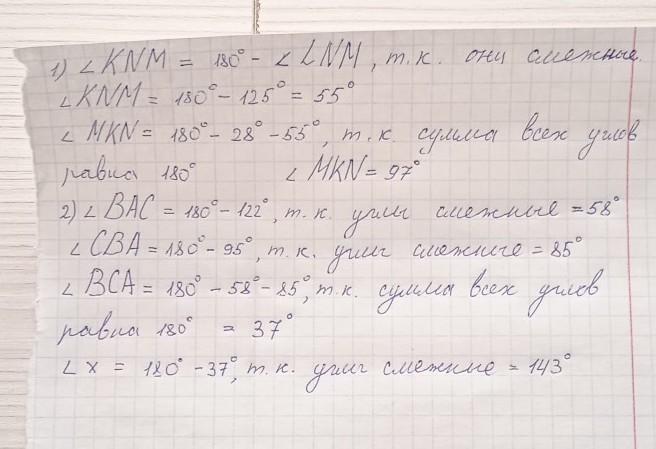 1) ∠KNM = 180° - ∠LNM, т.к. они смежные.
∠KNM = 180° - 125° = 55°
∠MKN = 180° - 28° - 55°, т.к. сумма всех углов
равна 180° ∠MKN = 97°
2) ∠BAC = 180° - 122°, т.к. углы смежные = 58°
∠CBA = 180° - 95°, т.к. углы смежные = 85°
∠BCA = 180° - 58° - 85°, т.к. сумма всех углов
равна 180° = 37°
∠x = 180° - 37°, т.к. углы смежные = 143°